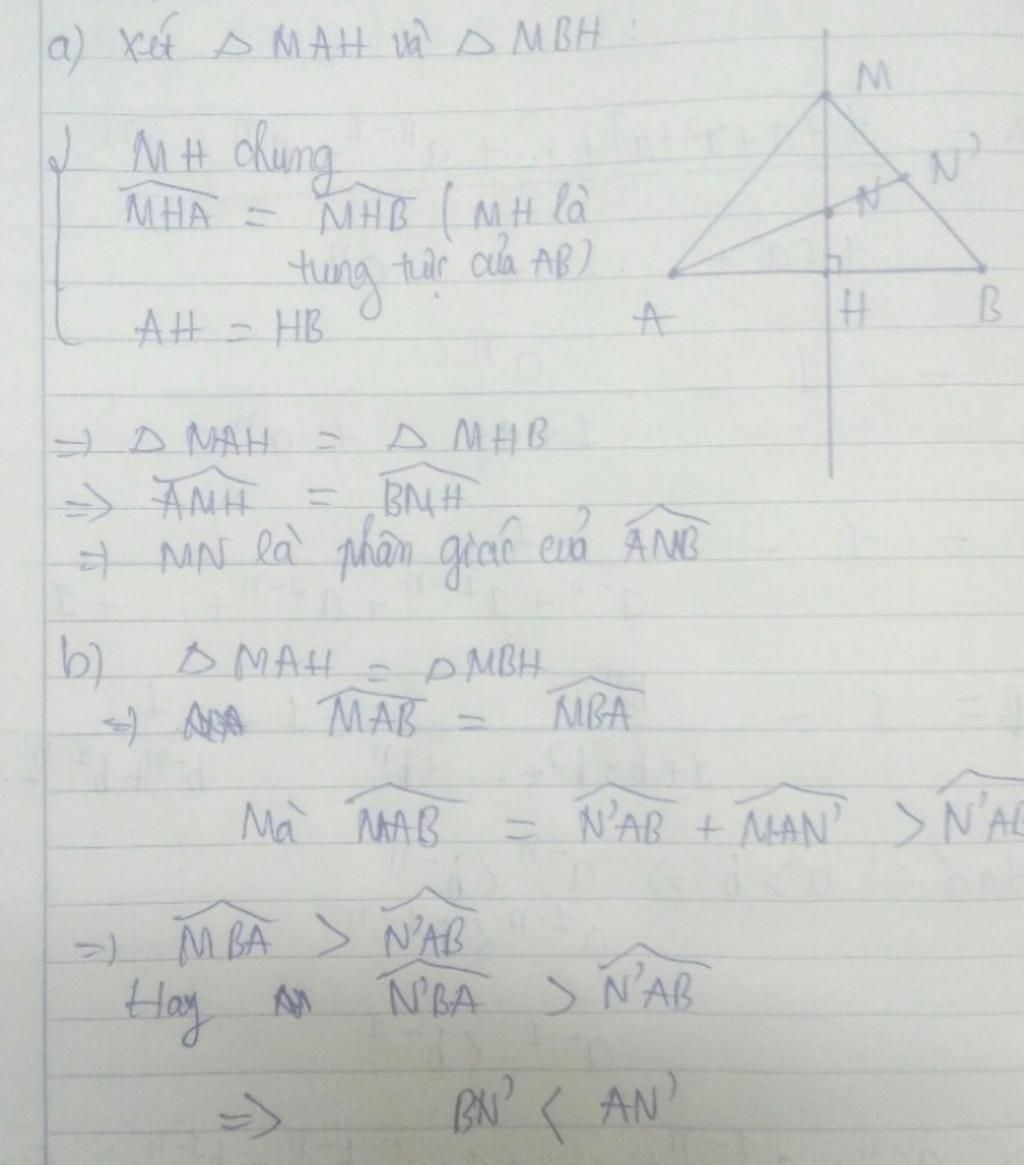 a) Xét △ MAH và △ MBH :
MH chung
MHA = MHB ( MH là
trung trực của AB)
AH = HB
=> △ MAH = △ MHB
=> AMH = BMH
=> MN là phân giác của AMB
b) △ MAH = △ MBH
=> MAB = MBA
Mà MAB = N'AB + MAN' > N'AB
=> MBA > N'AB
Hay N'BA > N'AB
=> BN' < AN'
M
N'
N
A
H
B